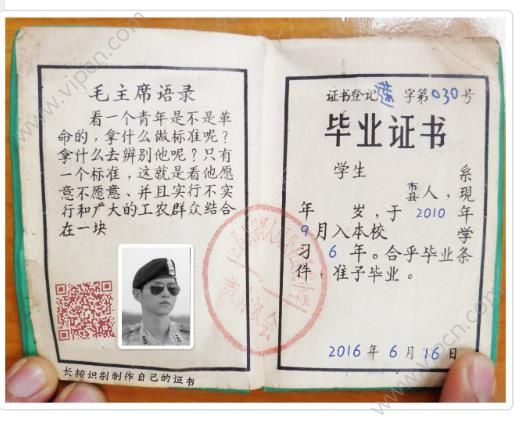 毛主席语录
看一个青年是不是革
命的，拿什么做标准呢？
拿什么去辨别他呢？只有
一个标准，这就是看他愿
意不愿意、并且实行不实
行和广大的工农群众结合
在一块
长按识别制作自己的证书
证书登记 字第030号
毕业证书
学生 系
市县人，现
年 岁，于 2010 年
9月入本校 学
习 6 年。合乎毕业条
件，准予毕业。
2016 年 6 月 16 日
www.vipcn.com